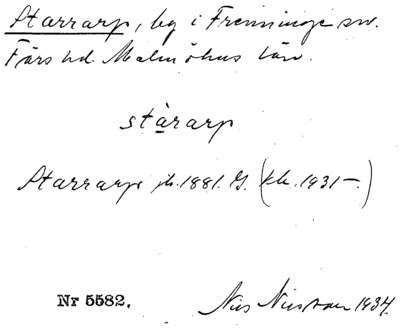 Starrarp, by i Frenninge sn.
Färs hd. Malmöhus län.
stårarp
Starrarp jb. 1881. G. (kk. 1931–)
Nr 5582.
Nils Nilsson 1934.